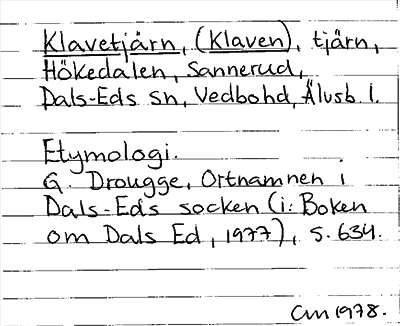 Klavetjärn, (Klaven), tjärn,
Hökedalen, Sannerud,
Dals-Eds sn, Vedbohd, Älvsb. l.
Etymologi.
G. Drougge, Ortnamnen i
Dals-Eds socken (i: Boken
om Dals Ed, 1977), s. 634.
CM 1978.